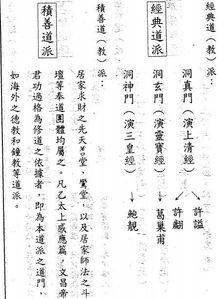 經典道(教)派:
經典道派
洞真門(演上清經)
許謐
許翽
洞玄門(演靈寶經)
葛巢甫
洞神門(演三皇經)
鮑靚
積善道(教)派:
積善道派
居家求財之先天
堂、鸞堂,以及居家師法之斗
壇等奉道團體均屬之。凡乙太上感應篇,文昌帝
君功過格為修道之依據者,即為本道派之道門,
如海外之德教和鐘教等道派。